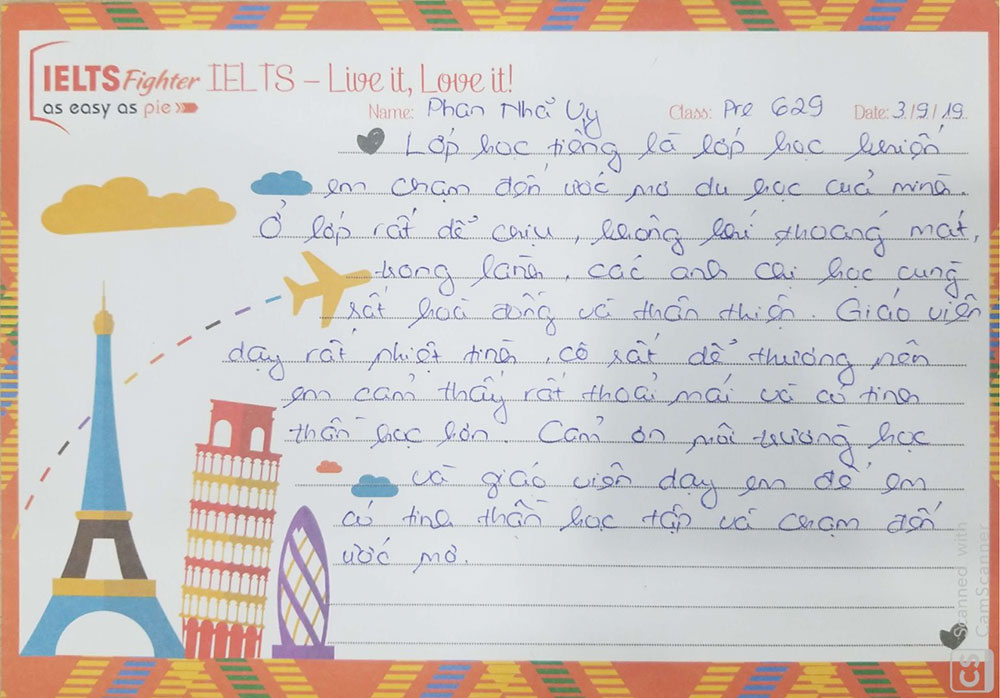 IELTS Fighter IELTS – Live it, Love it!
as easy as pie
Name: Phan Nhã Vy Class: Pre 629 Date: 3/9/19
Lớp học tiếng là lớp học khiến
em chạm đến ước mơ du học của mình.
Ở lớp rất dễ chịu, không khí thoáng mát,
trong lành, các anh chị học cũng
rất hoà đồng và thân thiện. Giáo viên
dạy rất nhiệt tình, cô rất dễ thương nên
em cảm thấy rất thoải mái và có tinh
thần học hơn. Cảm ơn môi trường học
và giáo viên dạy em để em
có tinh thần học tập và chạm đến
ước mơ.
Scanned with
CamScanner
CS